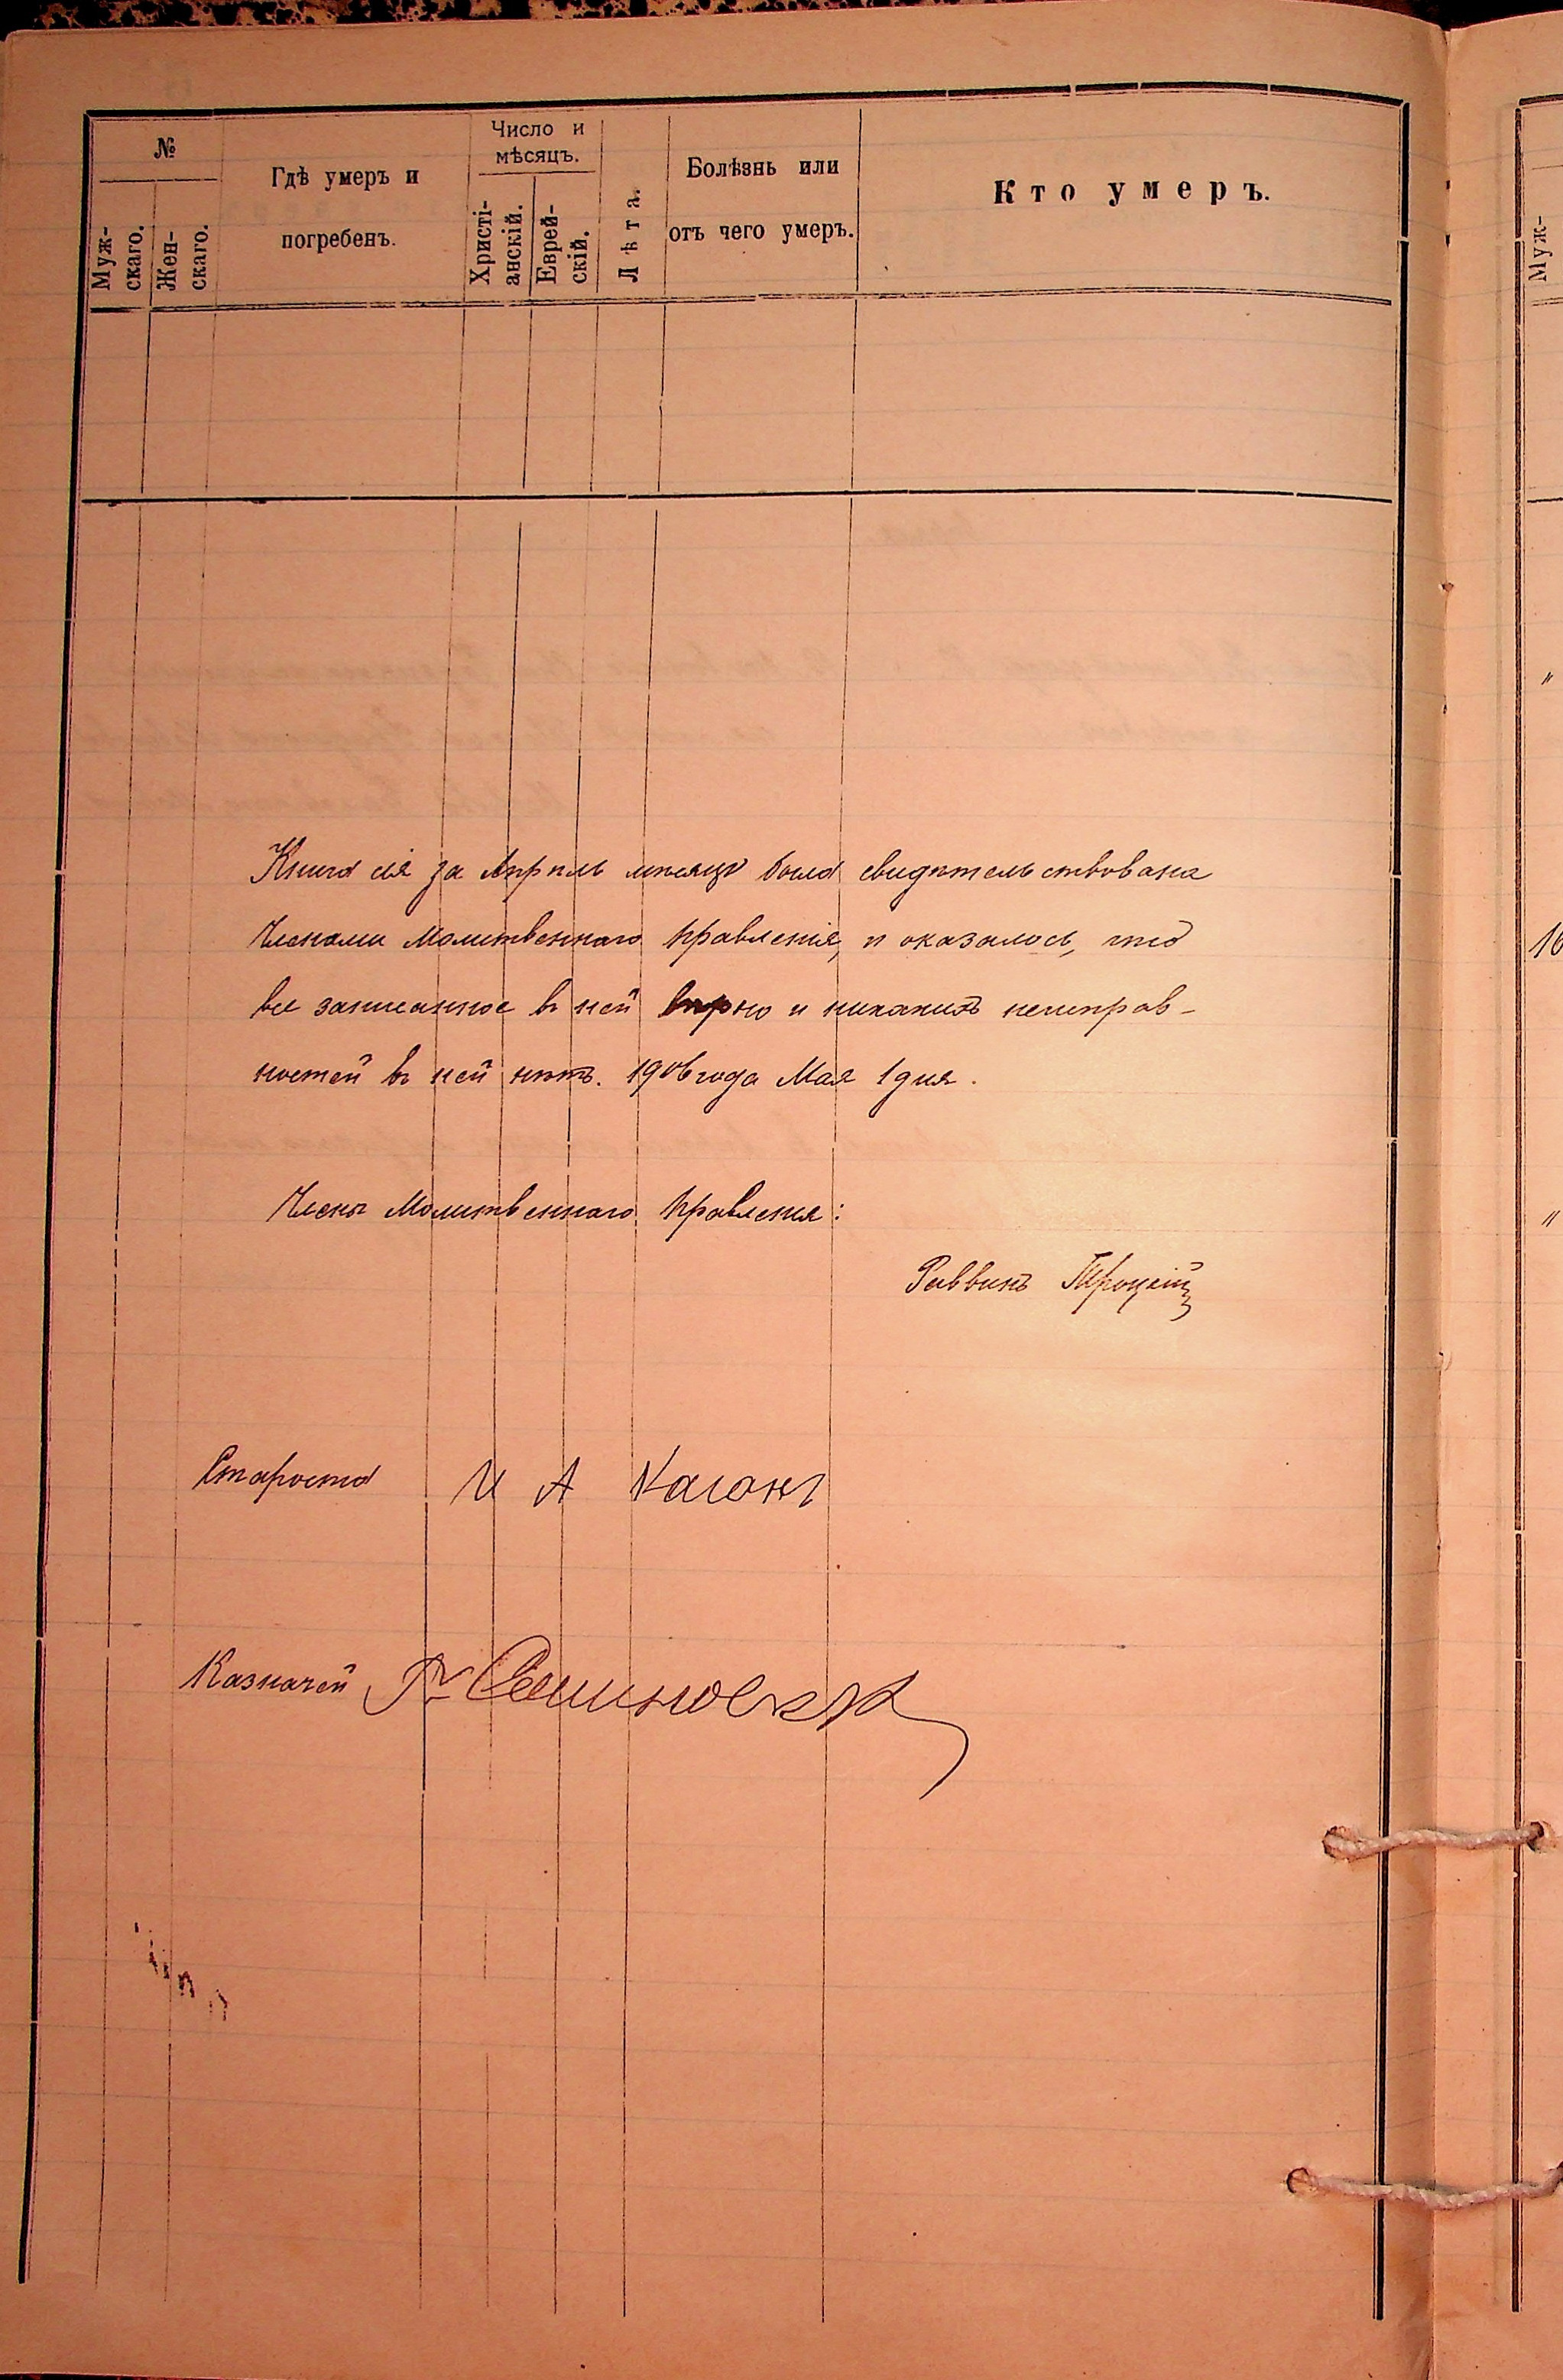 №
Муж-
скаго.
Жен-
скаго.
Гдѣ умеръ и
погребенъ.
Число и
мѣсяцъ.
Христі-
анскій.
Еврей-
скій.
Лѣта.
Болѣзнь или
отъ чего умеръ.
Кто умеръ.
Книга сія за Апрѣль мѣсяцъ была свидѣтельствована
Членами Молитвеннаго Правленія, и оказалось, что
все записанное въ ней вѣрно и никакихъ неисправ-
ностей въ ней нѣтъ. 1906 года Мая 1 дня.
Члены Молитвеннаго Правленія:
Раввинъ Троцкій
Староста И А Каганъ
Казначей
Муж-
"
16
"